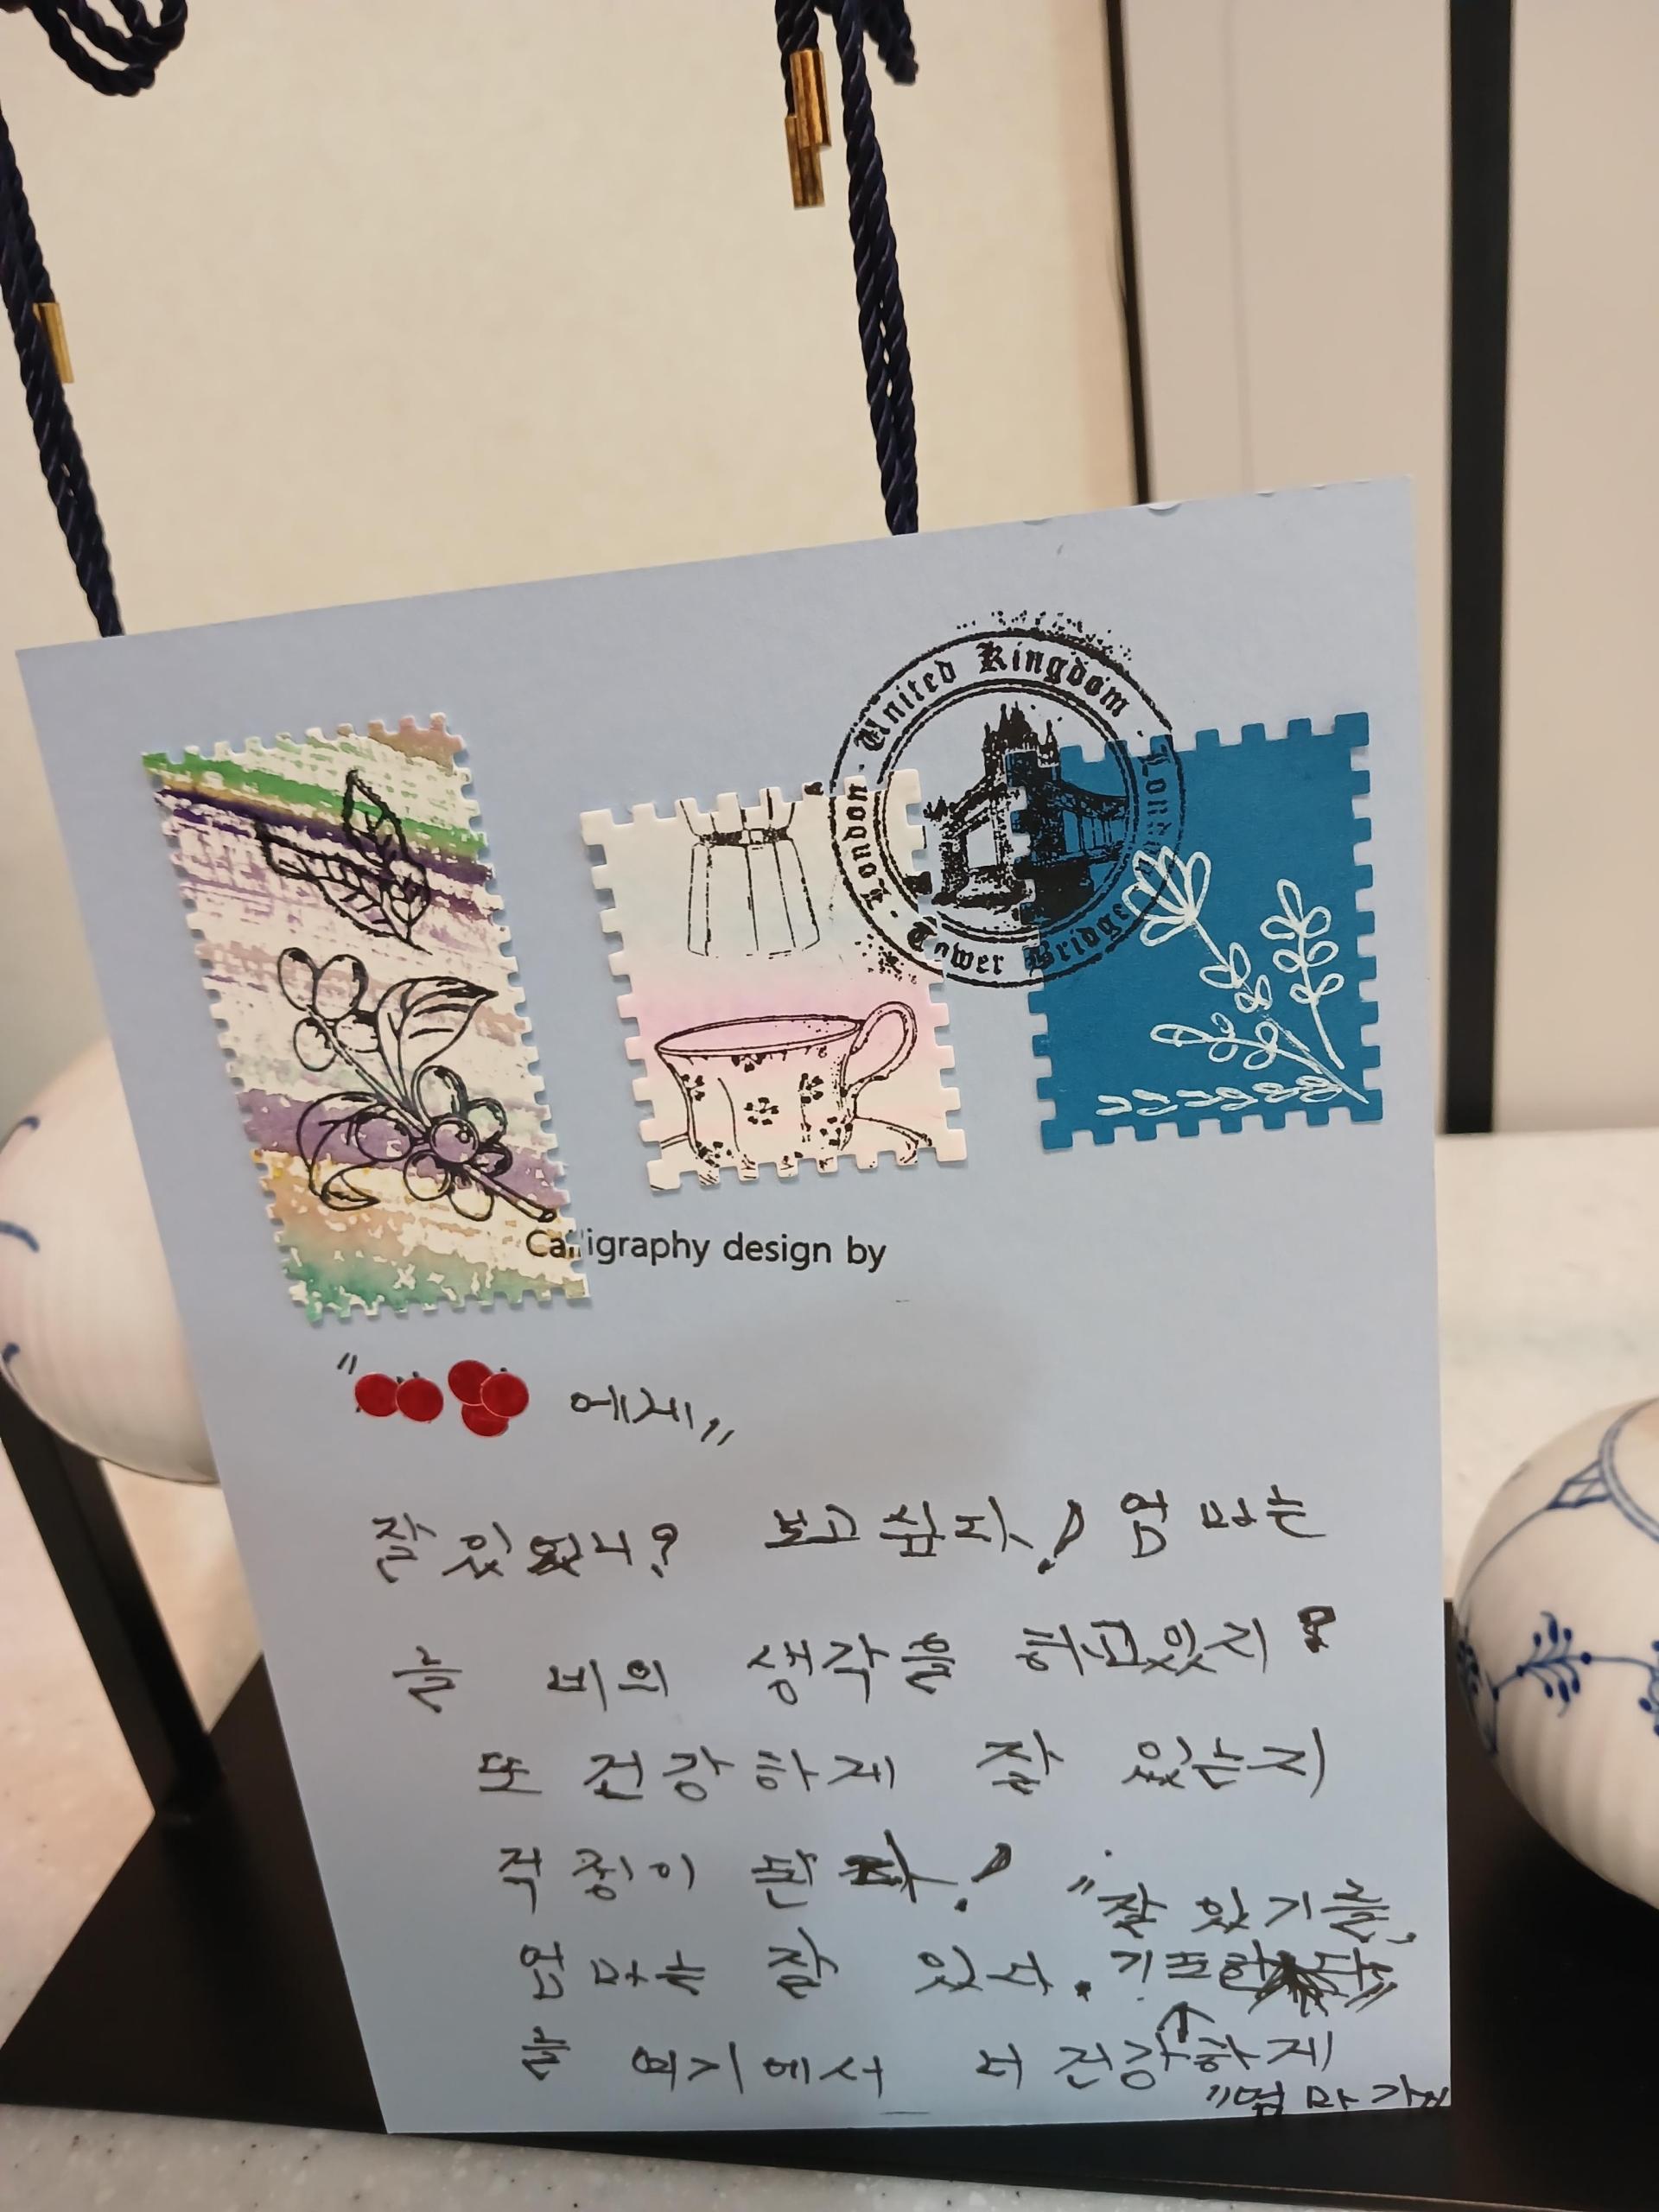 United Kingdom · London · Tower Bridge · London
Calligraphy design by
"에게„
잘 있었니? 보고 싶다! 엄마는
늘 너의 생각을 하고있지
또 건강하게 잘 있는지
걱정이 된다!
"잘 있기를,
엄마는 잘 있다. 기도한다"
늘 여기에서 너 건강하게
"엄마가"